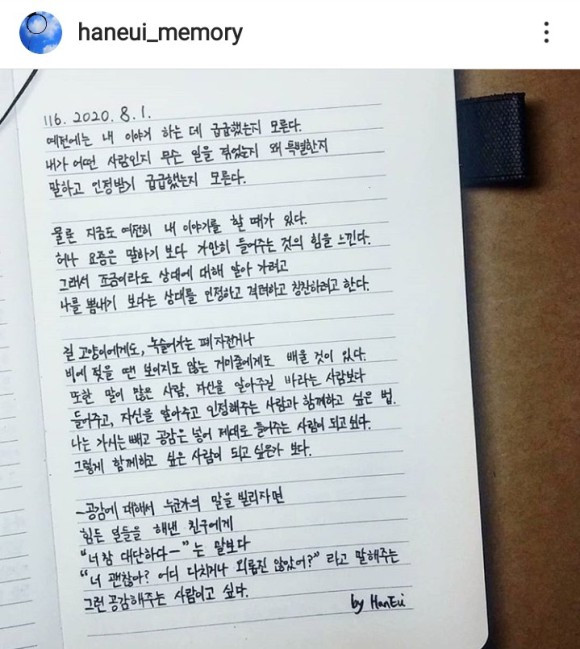 haneui_memory
116. 2020. 8. 1.
예전에는 내 이야기 하는 데 급급했는지 모른다.
내가 어떤 사람인지 무슨 일을 겪었는지 왜 특별한지
말하고 인정받기 급급했는지 모른다.
물론 지금도 여전히 내 이야기를 할 때가 있다.
허나 요즘은 말하기 보다 가만히 들어주는 것의 힘을 느낀다.
그래서 조금이라도 상대에 대해 알아 가려고
나를 뽐내기 보다는 상대를 인정하고 격려하고 칭찬하려고 한다.
길 고양이에게도, 녹슬어가는 폐 자전거나
비에 젖을 땐 보이지도 않는 거미줄에게도 배울 것이 있다.
또한 말이 많은 사람, 자신을 알아주길 바라는 사람보다
들어주고, 자신을 알아주고 인정해주는 사람과 함께하고 싶은 법.
나는 가시는 빼고 공감은 넣어 제대로 들어주는 사람이 되고 싶다.
그렇게 함께하고 싶은 사람이 되고 싶은가 보다.
-공감에 대해서 누군가의 말을 빌리자면
힘든 일들을 해낸 친구에게
"너 참 대단하다—"는 말보다
"너 괜찮아? 어디 다치거나 외롭진 않았어?" 라고 말해주는
그런 공감해주는 사람이고 싶다.
by HanEui